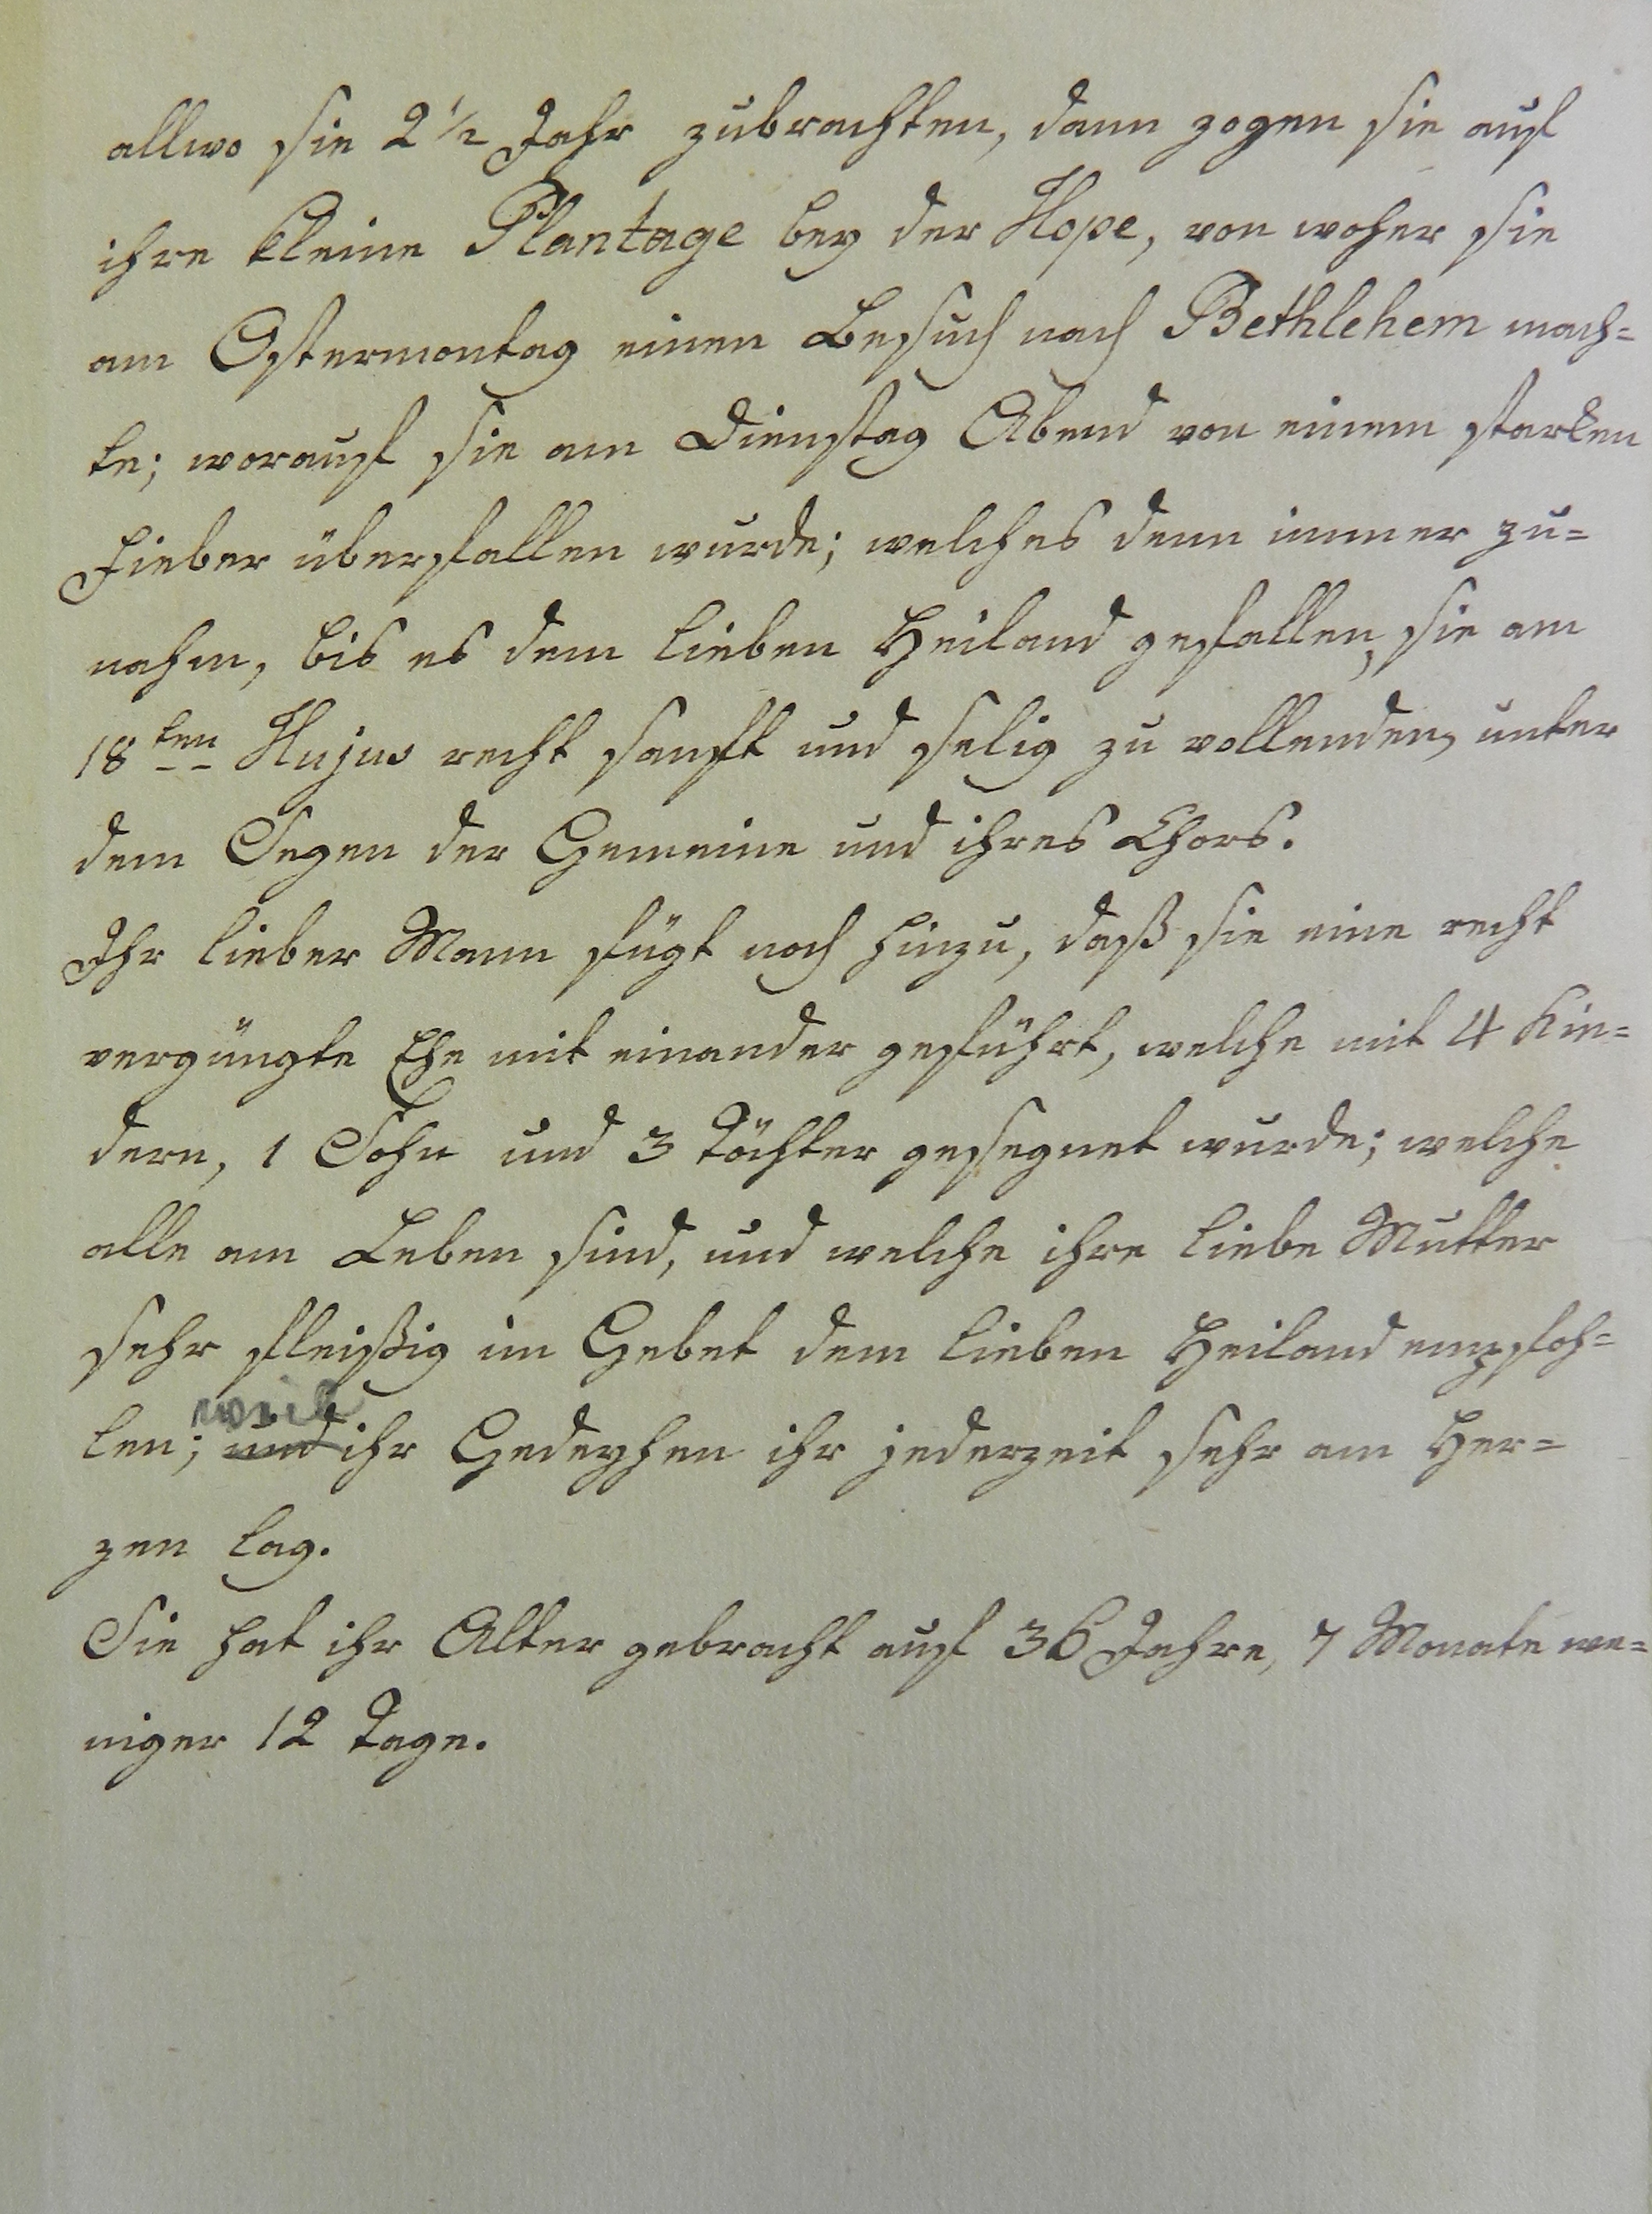 allwo sie 2 1/2 Jahr zubrachten, dann zogen sie auf
ihre kleine Plantage bey der Hope, von woher sie
am Ostermontag einen Besuch nach Bethlehem mach=
te; worauf sie am Dienstag Abend von einem starken
Fieber überfallen wurde; welches denn immer zu=
nahm, bis es dem lieben Heiland gefallen, sie am
18ten Hujus recht sanft und selig zu vollenden, unter
dem Segen der Gemeine und ihres Chors.
Ihr lieber Mann fügt noch hinzu, daß sie eine recht
vergüngte Ehe mit einander geführt, welche mit 4 Kin=
dern, 1 Sohn und 3 Töchter gesegnet wurde; welche
alle am Leben sind, und welche ihre liebe Mutter
sehr fleißig im Gebet dem lieben Heiland empfoh=
weil
len; und ihr Gedeyhen ihr jederzeit sehr am Her=
zen lag.
Sie hat ihr Alter gebracht auf 36 Jahre, 7 Monate we=
niger 12 Tage.